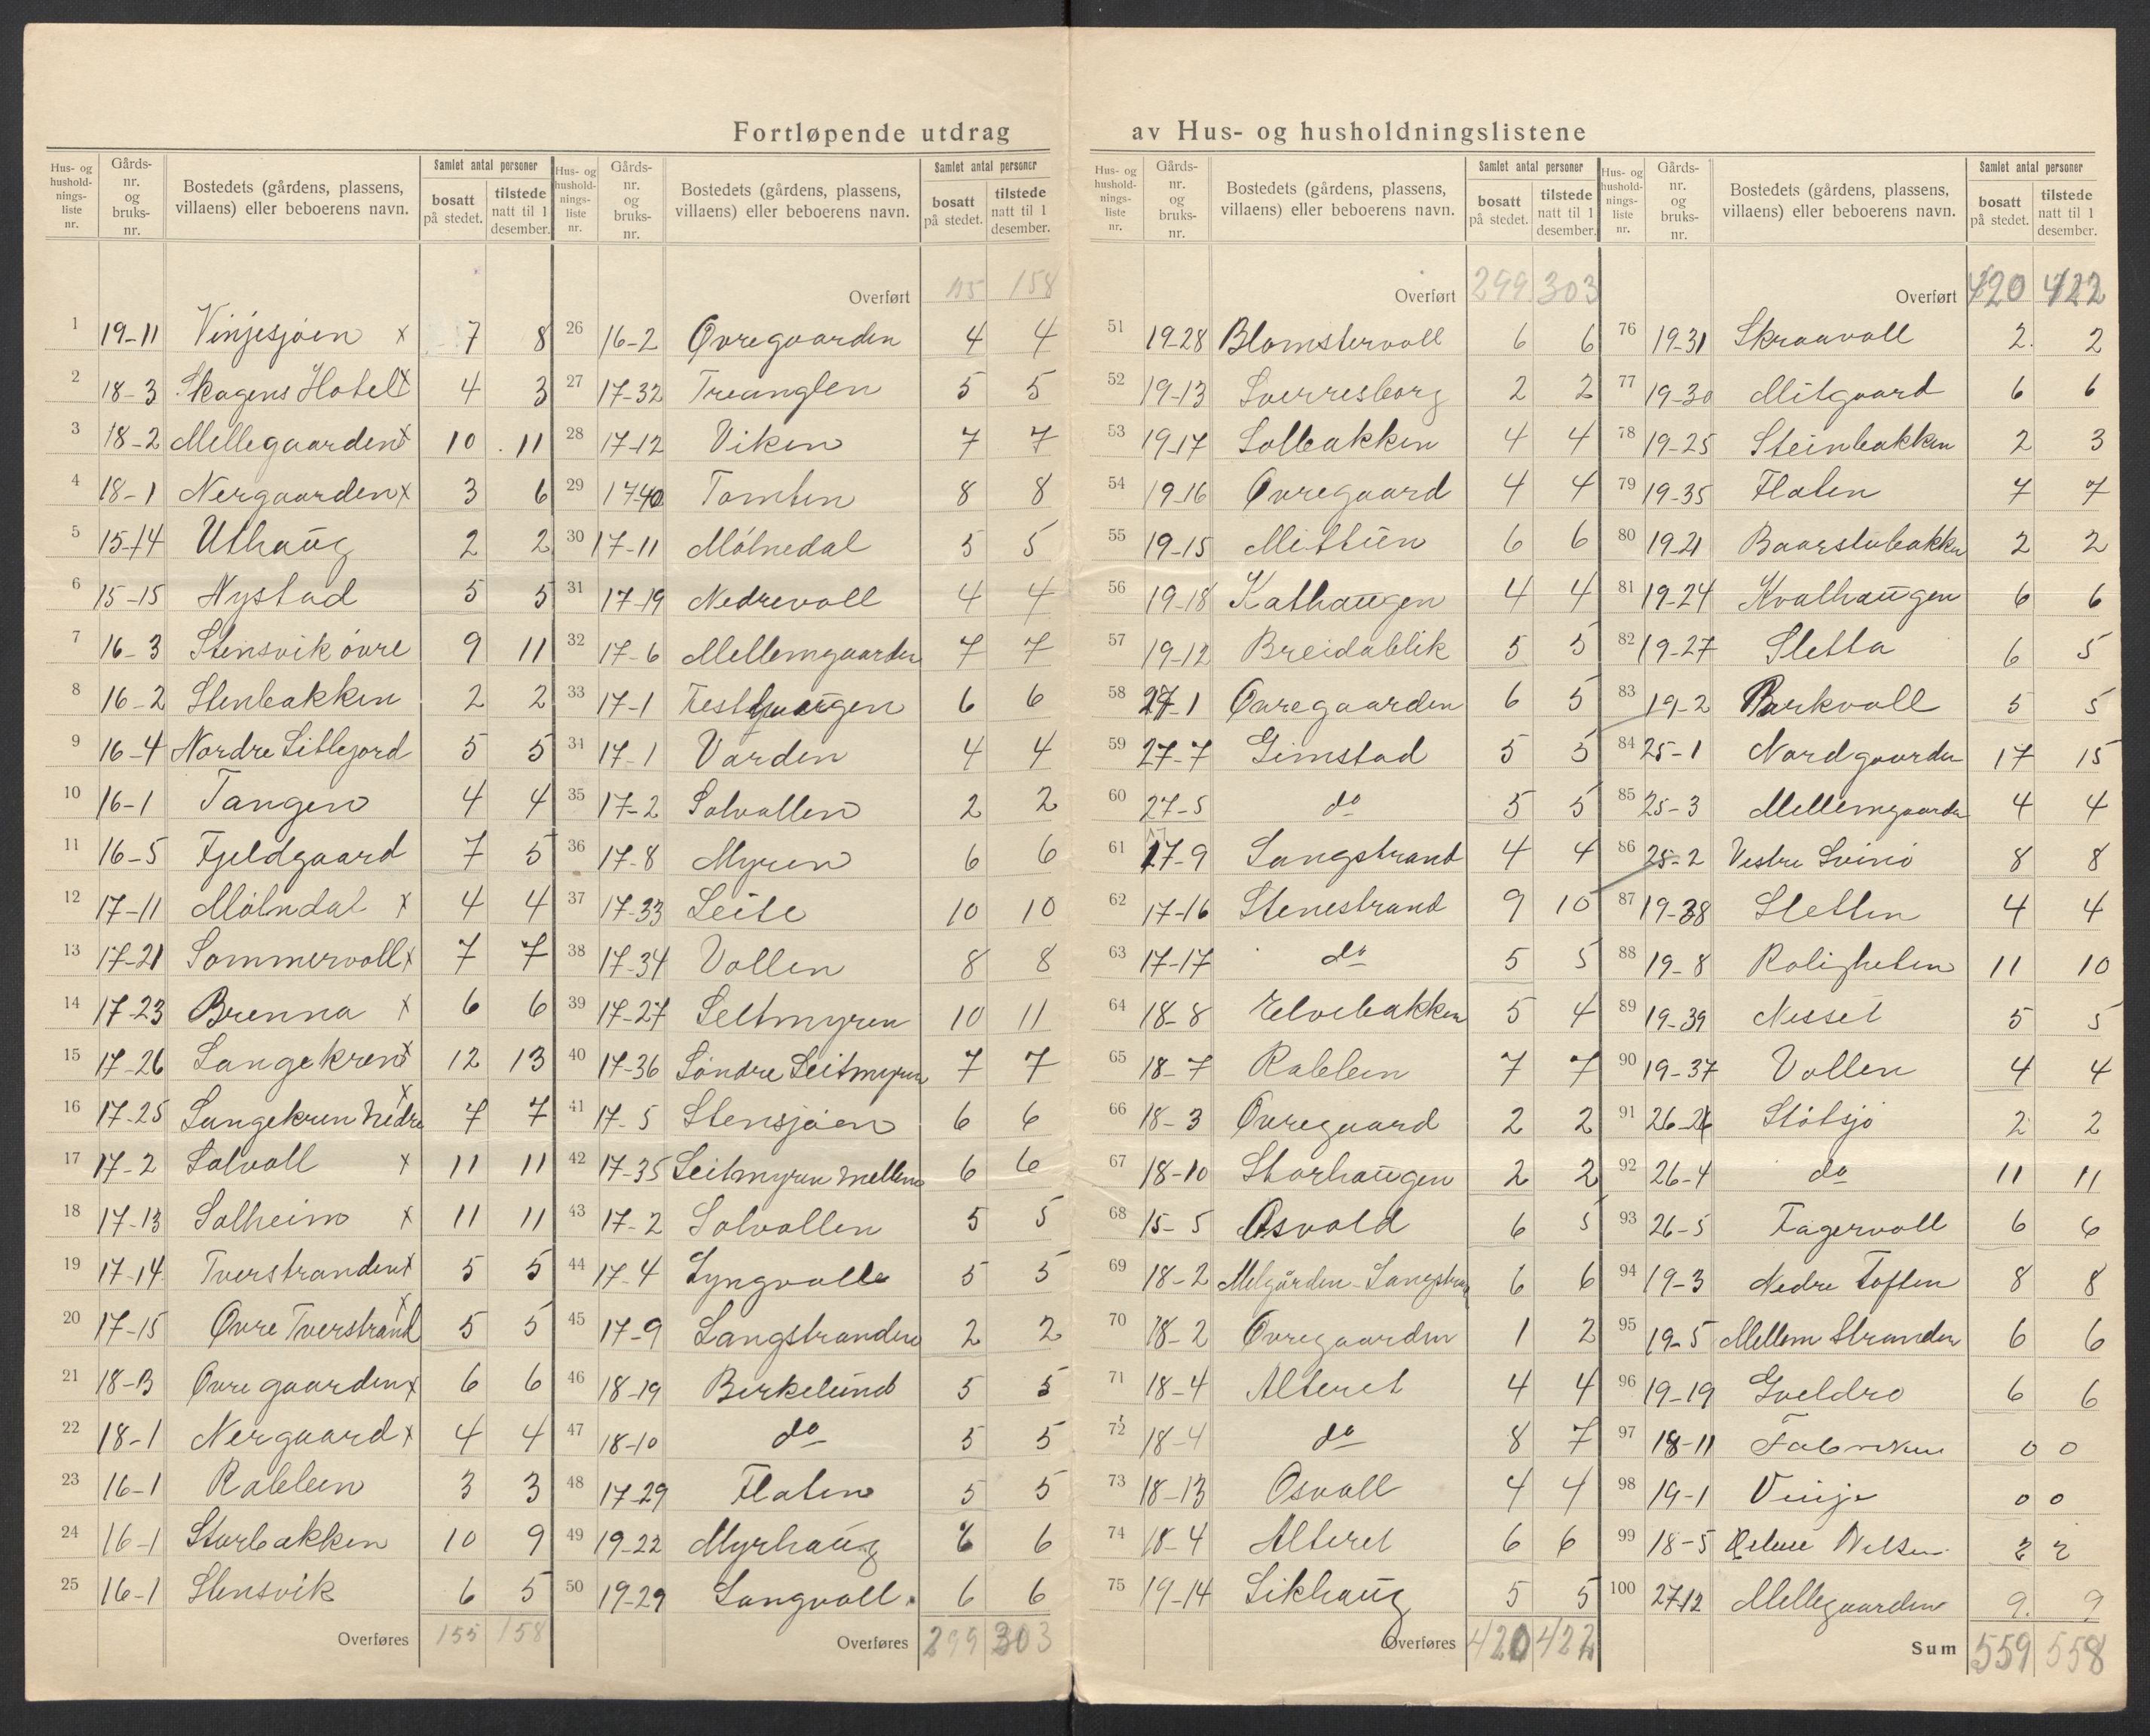 Fortløpende utdrag av Hus- og husholdningslistene
Hus- og hushold- nings- liste nr. Gårds- nr. og bruks- nr. Bostedets (gårdens, plassens, villaens) eller beboerens navn. Samlet antal personer bosatt på stedet. tilstede natt til 1 desember.
1 19-11 Vinjesjøen x 7 8
2 18-3 Skagens Hotel x 4 3
3 18-2 Mellegaarden x 10 11
4 18-1 Nergaarden x 3 6
5 15-14 Uthaug 2 2
6 15-15 Nystad 5 5
7 16-3 Stensvik øvre 9 11
8 16-2 Stenbakken 2 2
9 16-4 Nordre Litlejord 5 5
10 16-1 Tangen 4 4
11 16-5 Fjeldgaard 7 5
12 17-11 Mölndal x 4 4
13 17-21 Sommervoll x 7 7
14 17-23 Brenna x 6 6
15 17-26 Langekren x 12 13
16 17-25 Langekren Nedre x 7 7
17 17-2 Solvoll x 11 11
18 17-13 Solheim x 11 11
19 17-14 Tverstranden x 5 5
20 17-15 Øvre Tverstrand x 5 5
21 18-13 Øvregaarden x 6 6
22 18-1 Nergaard x 4 4
23 16-1 Rabben 3 3
24 16-1 Storbakken 10 9
25 16-1 Stensvik 6 5
Overføres 155 158
Hus- og hushold- nings- liste nr. Gårds- nr. og bruks- nr. Bostedets (gårdens, plassens, villaens) eller beboerens navn. Samlet antal personer bosatt på stedet. tilstede natt til 1 desember.
Overført 158
26 16-2 Øvregaarden 4 4
27 17-32 Treanglen 5 5
28 17-12 Viken 7 7
29 17-40 Tomten 8 8
30 17-11 Mölnedal 5 5
31 17-19 Nedrevoll 4 4
32 17-6 Mellemgaarden 7 7
33 17-1 6 6
34 17-1 Varden 4 4
35 17-2 Solvollen 2 2
36 17-8 Myren 6 6
37 17-33 Leite 10 10
38 17-34 Vollen 8 8
39 17-27 Leitmyren 10 11
40 17-36 Söndre Leitmyren 7 7
41 17-5 Stensjøen 6 6
42 17-35 Leitmyren mellem 6 6
43 17-2 Solvollen 5 5
44 17-4 Lyngvolle 5 5
45 17-9 Langstranden 2 2
46 18-19 Birkelund 5 5
47 18-10 do 5 5
48 17-29 Flaten 5 5
49 19-22 Myrhaug 6 6
50 19-29 Langvoll 6 6
Overføres 299 303
Hus- og hushold- nings- liste nr. Gårds- nr. og bruks- nr. Bostedets (gårdens, plassens, villaens) eller beboerens navn. Samlet antal personer bosatt på stedet. tilstede natt til 1 desember.
Overført 299 303
51 19-28 Blomstervoll 6 6
52 19-13 Sverresborg 2 2
53 19-17 Solbakken 4 4
54 19-16 Øvregaard 4 4
55 19-15 Mittun 6 6
56 19-18 Kathaugen 4 4
57 19-12 Breidablik 5 5
58 27-1 Øvregaarden 6 5
59 27-7 Gimstad 5 5
60 27-5 do 5 5
61 17-9 Langstrand 4 4
62 17-16 Stenestrand 9 10
63 17-17 do 5 5
64 18-8 Elvebakken 5 4
65 18-7 Rabben 7 7
66 18-3 Øvregaard 2 2
67 18-10 Storhaugen 2 2
68 15-5 Osvold 6 5
69 18-2 Melgården - Langstran 6 6
70 18-2 Øvregaarden 1 2
71 18-4 Alteret 4 4
72 18-4 do 8 7
73 18-13 Osvoll 4 4
74 18-4 Alteret 6 6
75 19-14 Likhaug 5 5
Overføres 420 422
Hus- og hushold- nings- liste nr. Gårds- nr. og bruks- nr. Bostedets (gårdens, plassens, villaens) eller beboerens navn. Samlet antal personer bosatt på stedet. tilstede natt til 1 desember.
Overført 420 422
76 19-31 Skraavoll 2 2
77 19-30 Mitgaard 6 6
78 19-25 Steinbakken 2 3
79 19-35 Flaten 7 7
80 19-21 Baarstubakken 2 2
81 19-24 Kvalhaugen 6 6
82 19-27 Sletta 6 5
83 19-2 Parkvoll 5 5
84 25-1 Nordgaarden 17 15
85 25-3 Mellemgaarden 4 4
86 25-2 Vestre Svinö 8 8
87 19-38 Sletten 4 4
88 19-8 Roligheten 11 10
89 19-39 Nesset 5 5
90 19-37 Vollen 4 4
91 26- Stötsjö 2 2
92 26-4 do 11 11
93 26-5 Fagervoll 6 6
94 19-3 Nedre Toften 8 8
95 19-5 Mellem Stranden 6 6
96 19-19 Gveldro 6 6
97 18-11 Fabrikken 0 0
98 19-1 Vinje 0 0
99 18-5 2 2
100 27-12 Mellegaarden 9 9
Sum 559 558